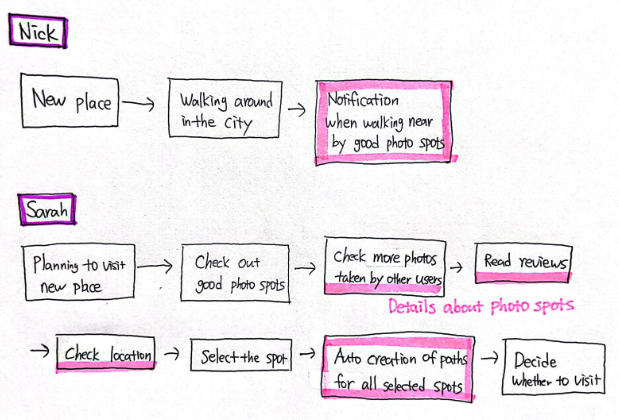 Nick
New place
Walking around
in the city
Notification
when walking near
by good photo spots
Sarah
Planning to visit
new place
Check out
good photo spots
Check more photos
taken by other users
Read reviews
Details about photo spots
Check location
Select the spot
Auto creation of paths
for all selected spots
Decide
whether to visit